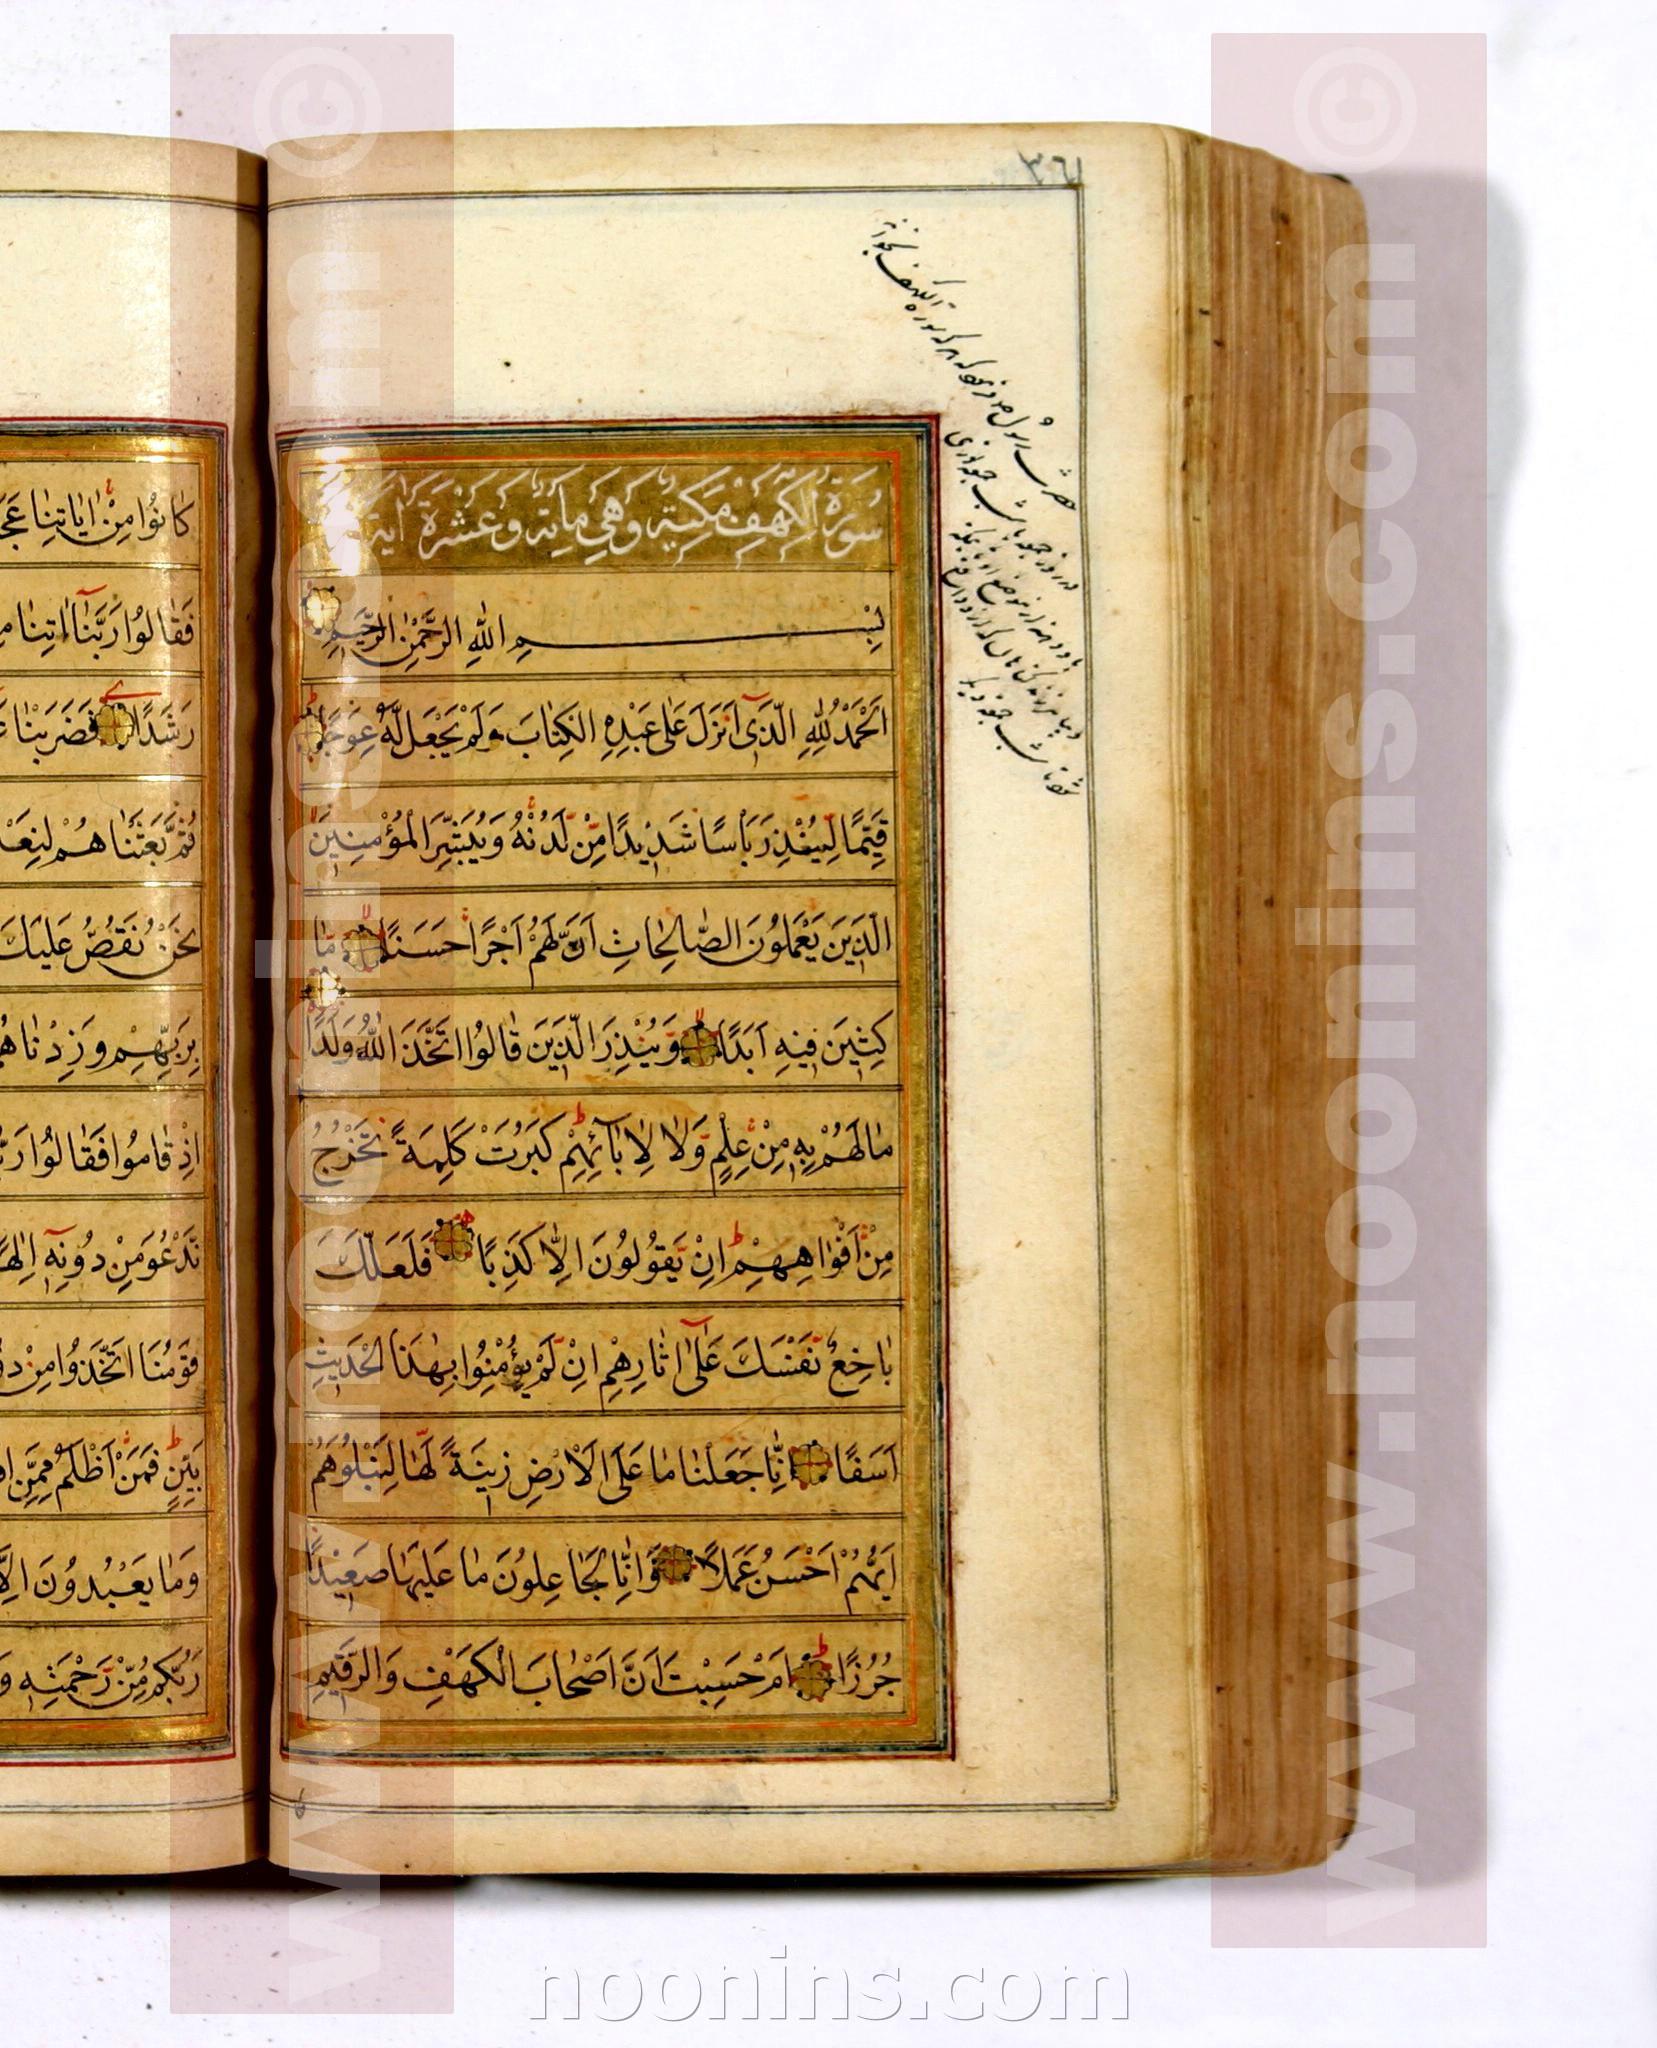 ٣٦١
سُورَةُ الْكَهْفِ مَكِّيَّةٌ وَهِيَ مِايَةٌ وَعَشْرَةُ اٰيَةٍ
بِسْمِ اللّٰهِ الرَّحْمٰنِ الرَّحِيْمِ
اَلْحَمْدُ لِلّٰهِ الَّذِىْ اَنْزَلَ عَلٰى عَبْدِهِ الْكِتَابَ وَلَمْ يَجْعَلْ لَّهُ عِوَجًا
قَيِّمًا لِّيُنْذِرَ بَاْسًا شَدِيْدًا مِّنْ لَّدُنْهُ وَيُبَشِّرَ الْمُؤْمِنِيْنَ
الَّذِيْنَ يَعْمَلُوْنَ الصَّالِحَاتِ اَنَّ لَهُمْ اَجْرًا حَسَنًا مَا
كِثِيْنَ فِيْهِ اَبَدًا وَيُنْذِرَ الَّذِيْنَ قَالُوا اتَّخَذَ اللّٰهُ وَلَدًا
مَا لَهُمْ بِهٖ مِنْ عِلْمٍ وَّلَا لِاٰبَآئِهِمْ كَبُرَتْ كَلِمَةً تَخْرُجُ
مِنْ اَفْوَاهِهِمْ اِنْ يَّقُوْلُوْنَ اِلَّا كَذِبًا فَلَعَلَّكَ
بَاخِعٌ نَّفْسَكَ عَلٰى اٰثَارِهِمْ اِنْ لَّمْ يُؤْمِنُوْا بِهٰذَا الْحَدِيْثِ
اَسَفًا اِنَّا جَعَلْنَا مَا عَلَى الْاَرْضِ زِيْنَةً لَّهَا لِنَبْلُوَهُمْ
اَيُّهُمْ اَحْسَنُ عَمَلًا وَّاِنَّا لَجَاعِلُوْنَ مَا عَلَيْهَا صَعِيْدًا
جُرُزًا اَمْ حَسِبْتَ اَنَّ اَصْحَابَ الْكَهْفِ وَالرَّقِيْمِ
كَانُوْا مِنْ اٰيَاتِنَا عَجَ
فَقَالُوْا رَبَّنَا اٰتِنَا
رَشَدًا فَضَرَبْنَا
ثُمَّ بَعَثْنَاهُمْ لِنَعْ
نَحْنُ نَقُصُّ عَلَيْكَ
بِرَبِّهِمْ وَزِدْنَاهُ
اِذْ قَامُوْا فَقَالُوْا رَ
نَّدْعُوَ مِنْ دُوْنِهٖ اِلٰهًا
قَوْمُنَا اتَّخَذُوْا مِنْ دُ
بَيِّنٍ فَمَنْ اَظْلَمُ مِمَّنِ
وَمَا يَعْبُدُوْنَ اِلَّا
رَبُّكُمْ مِّنْ رَّحْمَتِهٖ وَ
www.noonins.com ©
www.noonins.com ©
noonins.com